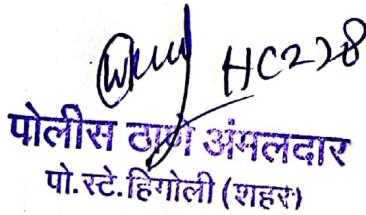 HC228
पोलीस ठाणे अंमलदार
पो.स्टे.हिंगोली (शहर)